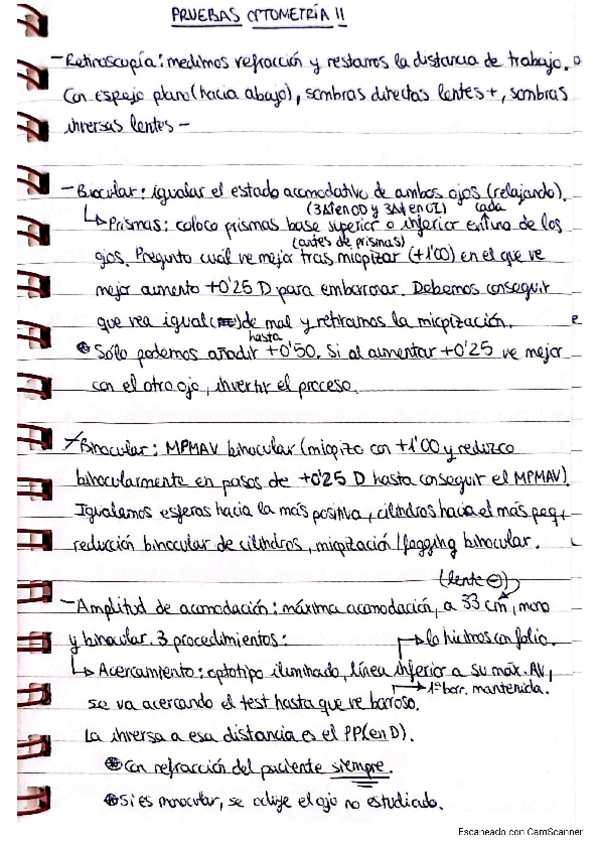 PRUEBAS OPTOMETRÍA II
- Retinoscopía: medimos refracción y restamos la distancia de trabajo.
Con espejo plano (hacia abajo), sombras directas lentes +, sombras
inversas lentes -
- Biocular: igualar el estado acomodativo de ambos ojos (relajando).
(3Δ en OD y 3Δ en OI) cada
↳ Prismas: coloco prismas base superior o inferior en uno de los
(antes de prismas)
ojos. Pregunto cuál ve mejor tras miopizar (+1'00) en el que ve
mejor aumento +0'25 D para emborronar. Debemos conseguir
que vea igual de mal y retiramos la miopización.
hasta
Sólo podemos añadir +0'50. Si al aumentar +0'25 ve mejor
con el otro ojo, invertir el proceso.
Binocular: MPMAV binocular (miopizo con +1'00 y reduzco
binocularmente en pasos de +0'25 D hasta conseguir el MPMAV).
Igualamos esferas hacia la más positiva, cilindros hacia el más peq,
reducción binocular de cilindros, miopización/fogging binocular.
(lente ⊖)
- Amplitud de acomodación: máxima acomodación, a 33 cm, mono
y binocular. 3 procedimientos: → lo hicimos con folio.
↳ Acercamiento: optotipo iluminado, línea inferior a su máx. AV,
→ 1ª borr. mantenida.
se va acercando el test hasta que ve borroso.
La inversa a esa distancia es el PP (en D).
Con refracción del paciente siempre.
Si es monocular, se ocluye el ojo no estudiado.
Escaneado con CamScanner